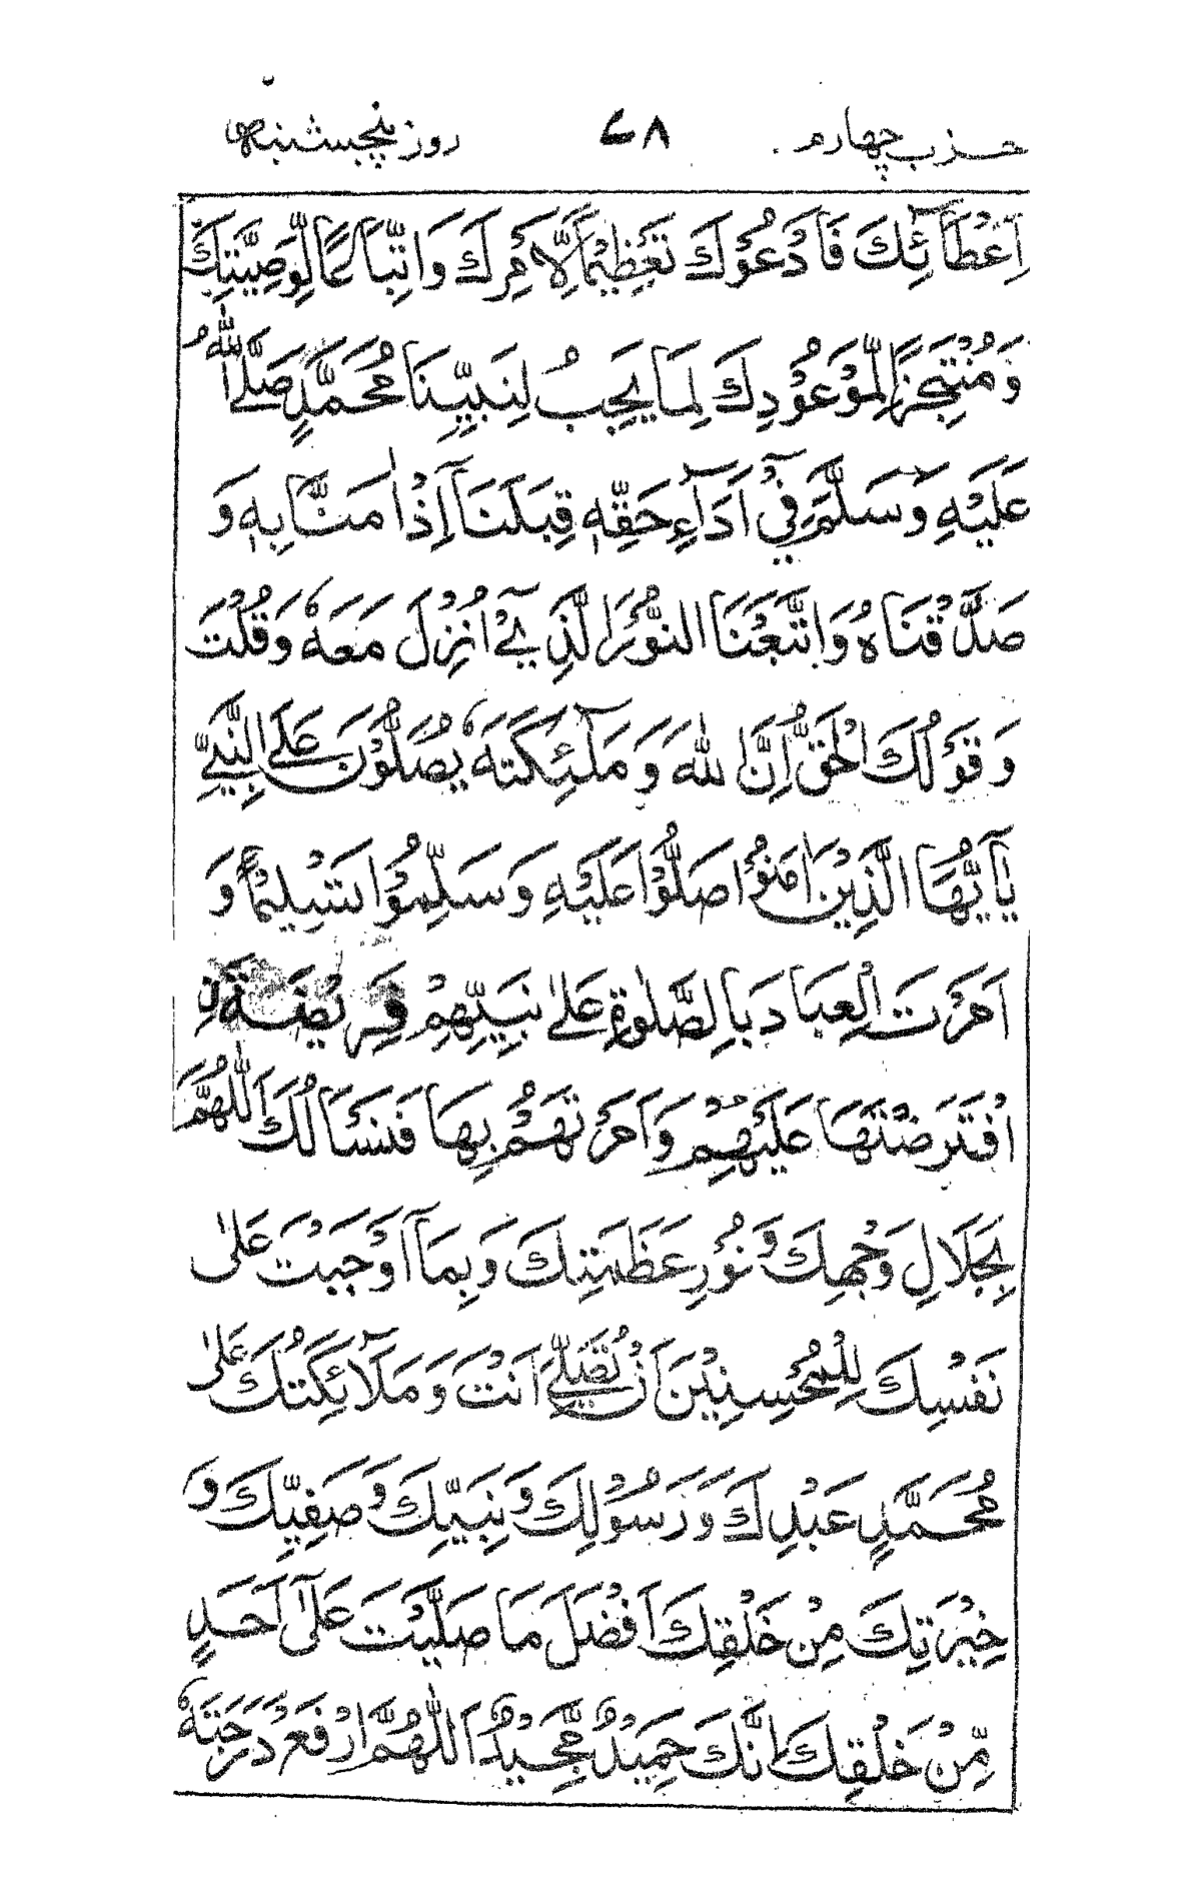 حزب چهارم ٧٨ روز پنجشنبه
اَعْطَآئِكَ فَاَدْعُوْكَ تَعْظِيْمًا لِّاَمْرِكَ وَاتِّبَاعًا لِّوَصِيَّتِكَ
وَمُنْتَجِزًا لِّمَوْعُوْدِكَ لِمَا يَجِبُ لِنَبِيِّنَا مُحَمَّدٍ صَلَّى اللّٰهُ
عَلَيْهِ وَسَلَّمَ فِيْٓ اَدَآءِ حَقِّهٖ قِبَلَنَآ اِذْ اٰمَنَّا بِهٖ وَ
صَدَّقْنَاهُ وَاتَّبَعْنَا النُّوْرَ الَّذِيْٓ اُنْزِلَ مَعَهٗ وَقُلْتَ
وَقَوْلُكَ الْحَقُّ اِنَّ اللّٰهَ وَمَلٰٓئِكَتَهٗ يُصَلُّوْنَ عَلَى النَّبِيِّ
يٰٓاَيُّهَا الَّذِيْنَ اٰمَنُوْا صَلُّوْا عَلَيْهِ وَسَلِّمُوْا تَسْلِيْمًا وَ
اَمَرْتَ الْعِبَادَ بِالصَّلٰوةِ عَلٰى نَبِيِّهِمْ فَرِيْضَةَ نِ
افْتَرَضْتَهَا عَلَيْهِمْ وَاَمَرْتَهُمْ بِهَا فَنَسْاَلُكَ اَللّٰهُمَّ
بِجَلَالِ وَجْهِكَ وَنُوْرِ عَظَمَتِكَ وَبِمَآ اَوْجَبْتَ عَلٰى
نَفْسِكَ لِلْمُحْسِنِيْنَ اَنْ تُصَلِّيَ اَنْتَ وَمَلَآئِكَتُكَ عَلٰى
مُحَمَّدٍ عَبْدِكَ وَرَسُوْلِكَ وَنَبِيِّكَ وَصَفِيِّكَ وَ
خِيْرَتِكَ مِنْ خَلْقِكَ اَفْضَلَ مَا صَلَّيْتَ عَلٰٓى اَحَدٍ
مِّنْ خَلْقِكَ اِنَّكَ حَمِيْدٌ مَّجِيْدٌ اَللّٰهُمَّ ارْفَعْ دَرَجَتَهٗ